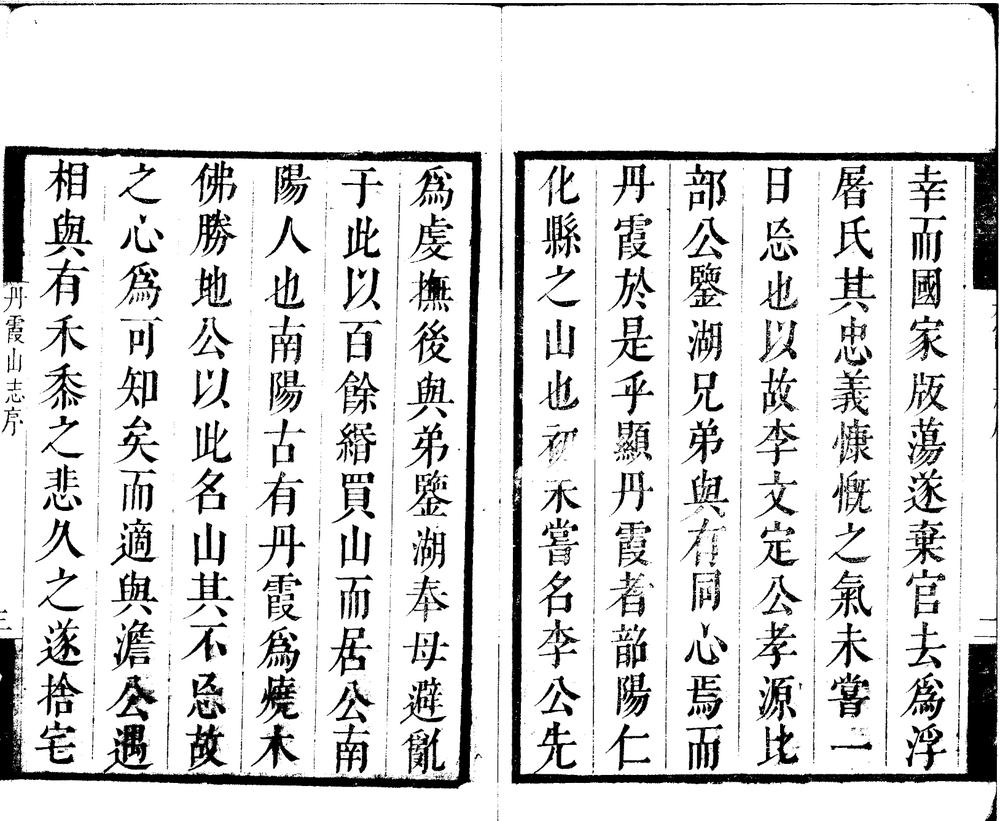 幸而國家版蕩遂棄官去為浮
屠氏其忠義慷慨之氣未嘗一
日忘也以故李文定公孝源比
部公鑒湖兄弟與有同心焉而
丹霞於是乎顯丹霞者韶陽仁
化縣之山也初未嘗名李公先
為虔撫後與弟鑒湖奉母避亂
于此以百餘緡買山而居公南
陽人也南陽古有丹霞為燒木
佛勝地公以此名山其不忘故
之心為可知矣而適與澹公遇
相與有禾黍之悲久之遂捨宅
丹霞山志序
三